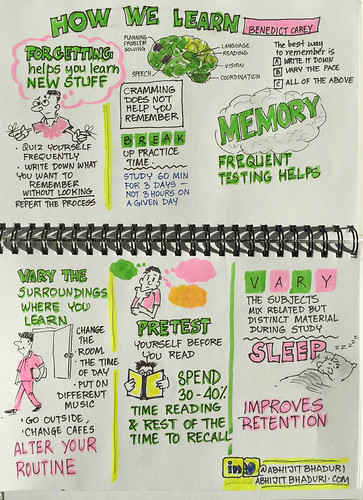 HOW WE LEARN
BENEDICT CAREY
FORGETTING
helps you learn
NEW STUFF
• QUIZ YOURSELF
FREQUENTLY
• WRITE DOWN WHAT
YOU WANT TO
REMEMBER
WITHOUT LOOKING
REPEAT THE PROCESS
PLANNING
PROBLEM
SOLVING
SPEECH
LANGUAGE
READING
VISION
COORDINATION
CRAMMING
DOES NOT
HELP YOU
REMEMBER
BREAK
UP PRACTICE
TIME
STUDY 60 MIN
FOR 3 DAYS —
NOT 3 HOURS ON
A GIVEN DAY
The best way
to remember is
A WRITE IT DOWN
B VARY THE PACE
C ALL OF THE ABOVE
MEMORY
FREQUENT
TESTING HELPS
VARY THE
SURROUNDINGS
WHERE YOU
LEARN
CHANGE
THE
ROOM
• THE TIME
OF DAY
• PUT ON
DIFFERENT
MUSIC
• GO OUTSIDE,
• CHANGE CAFES
ALTER YOUR
ROUTINE
PRETEST
YOURSELF BEFORE
YOU READ
SPEND
30-40%
TIME READING
& REST OF THE
TIME TO RECALL
VARY
THE SUBJECTS
MIX RELATED BUT
DISTINCT MATERIAL
DURING STUDY
SLEEP
ZZZZ
IMPROVES
RETENTION
in
@ABHIJITBHADURI
ABHIJITBHADURI.COM